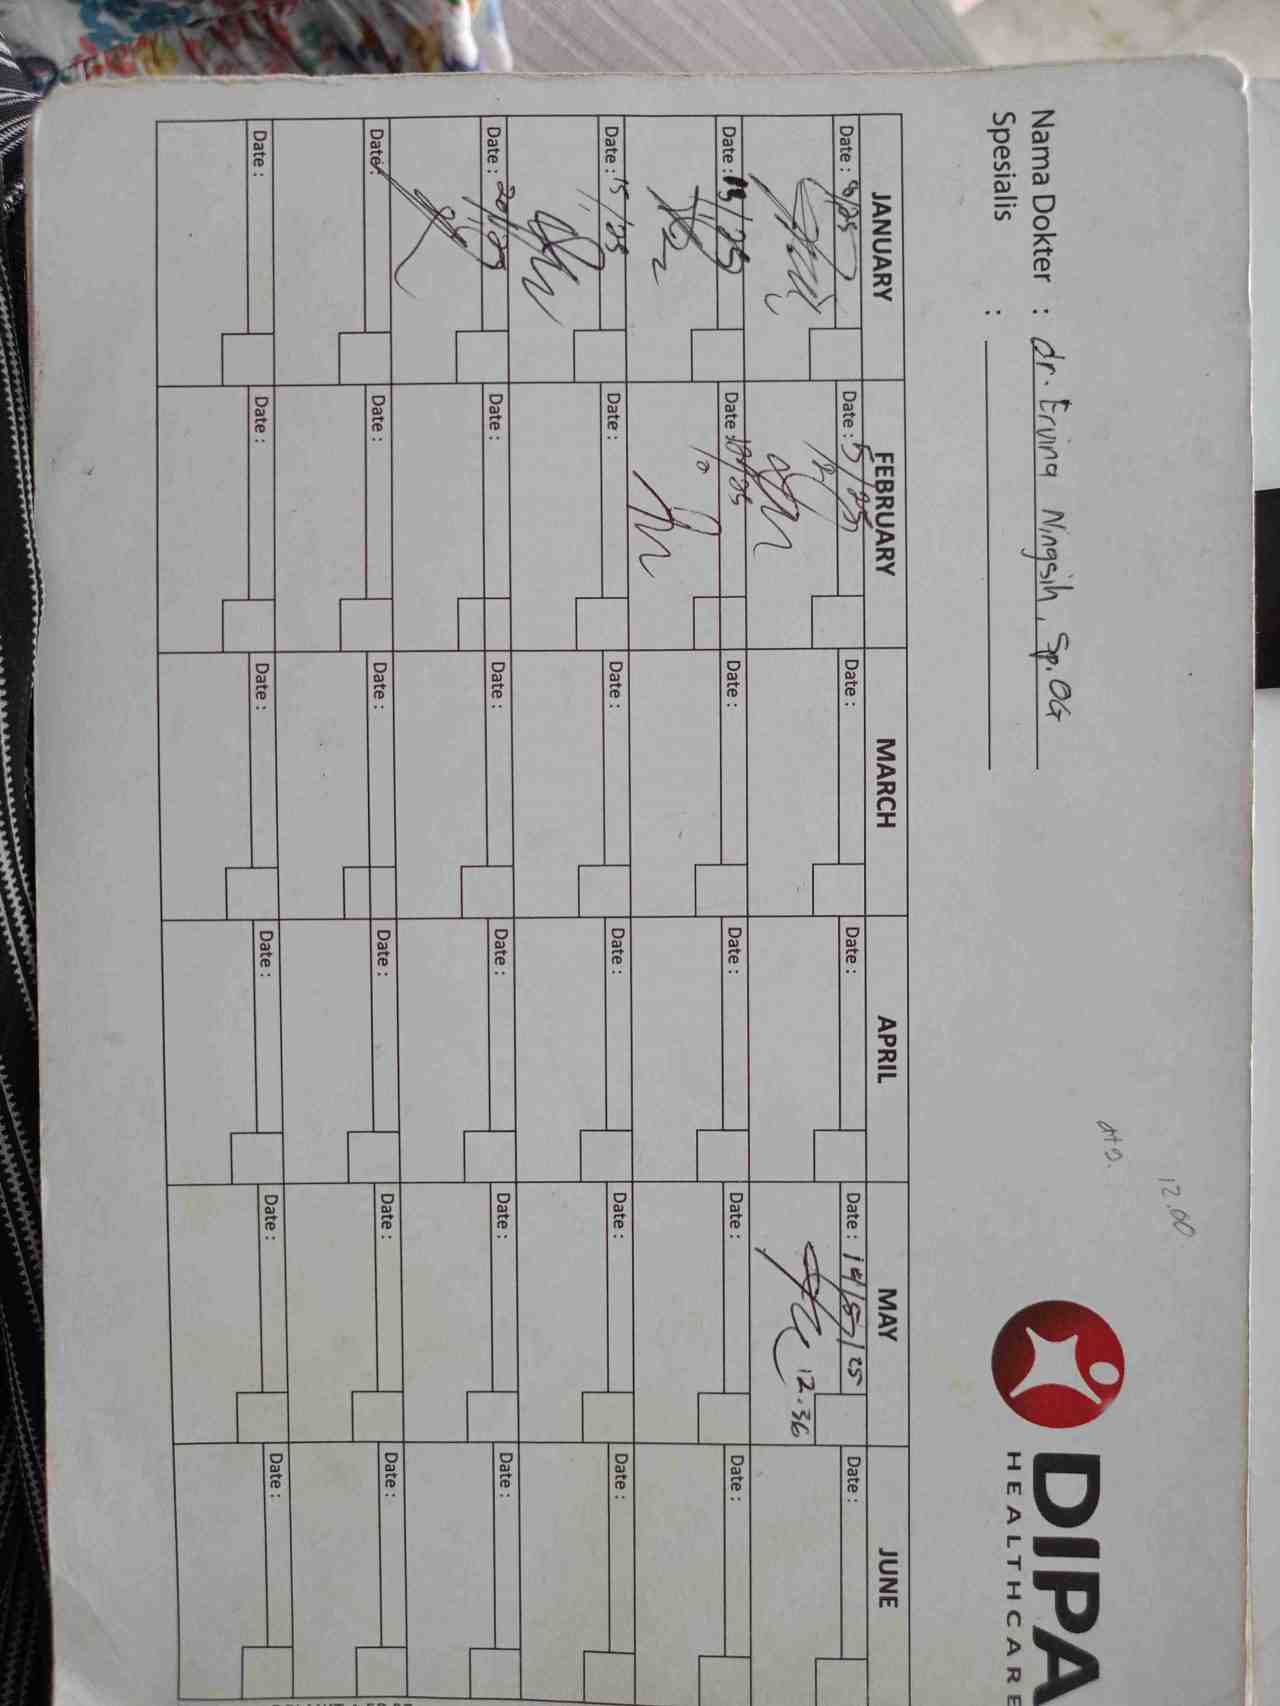 12.00
dto.
DIPA
HEALTHCARE
Nama Dokter : dr. Ervina Ningsih, Sp.OG
Spesialis :
JANUARY FEBRUARY MARCH APRIL MAY JUNE
Date : 8/25 Date : 5/25 Date : Date : Date : 14/5/25 Date :
12.36
Date : 13/25 Date : Date : Date : Date : Date :
Date : 15/25 Date : Date : Date : Date : Date :
Date : 20/25 Date : Date : Date : Date : Date :
Date : Date : Date : Date : Date : Date :
Date : Date : Date : Date : Date : Date :